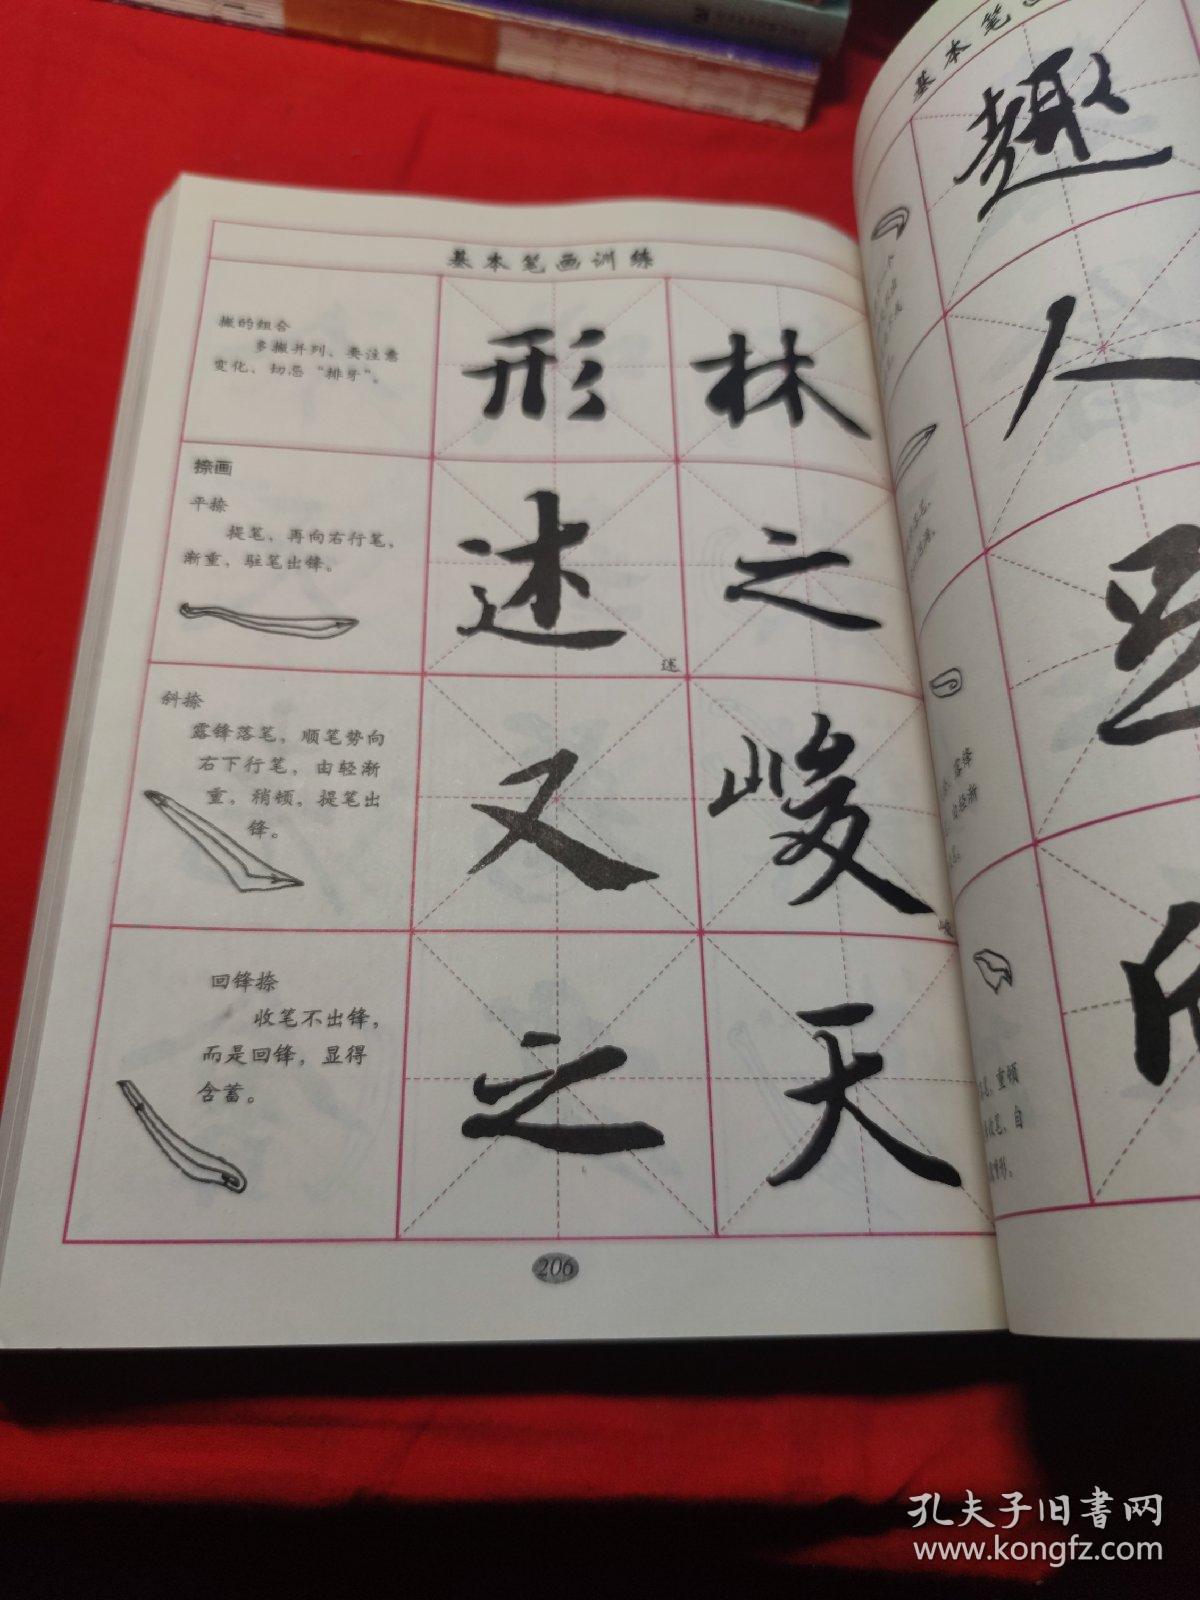 基本笔画训练
撇的组合
多撇并列、要注意
变化、切忌“排牙”。
形
林
捺画
平捺
提笔、再向右行笔，
渐重，驻笔出锋。
述
之
述
斜捺
露锋落笔，顺笔势向
右下行笔，由轻渐
重，稍顿，提笔出
锋。
又
峻
峻
回锋捺
收笔不出锋，
而是回锋，显得
含蓄。
之
天
206
基本笔
趣
人
露锋
由轻渐
重顿
自
孔夫子旧书网
www.kongfz.com